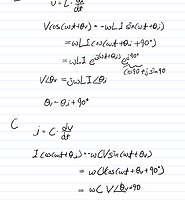 v = L · di/dt
V cos(ωt+θv) = -ωLI sin(ωt+θi)
= ωLI cos(ωt+θi+90°)
= ωLI e^j(ωt+θi) e^j90°
cos90+j sin90
V∠θv = jωLI∠θi
θv = θi+90°
C
i = C · dv/dt
I cos(ωt+θi) = -ωCV sin(ωt+θv)
= ωCV cos(ωt+θv+90°)
= ωC V∠θv+90